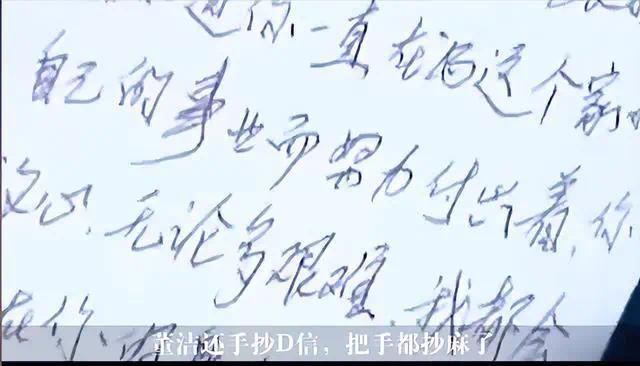 你一直在为这个家
自己的事业而努力付出着,你
放心,无论多艰难,我都会
在你
董洁还手抄D信，把手都抄麻了